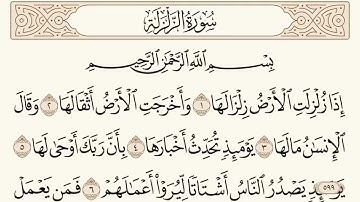 سُورَةُ الزَّلْزَلَةِ
بِسْمِ اللَّهِ الرَّحْمَٰنِ الرَّحِيمِ
إِذَا زُلْزِلَتِ الْأَرْضُ زِلْزَالَهَا ١ وَأَخْرَجَتِ الْأَرْضُ أَثْقَالَهَا ٢ وَقَالَ
الْإِنسَٰنُ مَا لَهَا ٣ يَوْمَئِذٍ تُحَدِّثُ أَخْبَارَهَا ٤ بِأَنَّ رَبَّكَ أَوْحَىٰ لَهَا ٥
يَوْمَئِذٍ يَصْدُرُ النَّاسُ أَشْتَاتًا لِّيُرَوْا أَعْمَٰلَهُمْ ٦ فَمَن يَعْمَلْ
٥٩٩